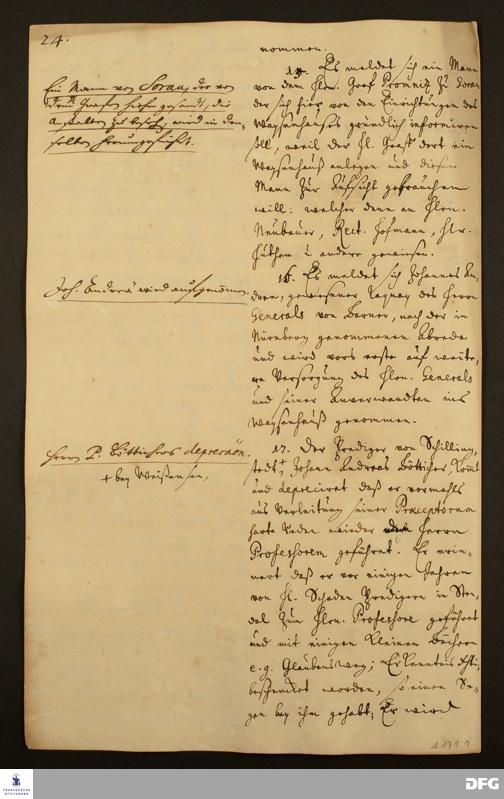 24.
nommen.
Ein Mann von Sorau, der von
dem Grafen hieher gesandt, die
Anstalten zu besehen, wird in den-
selben herumgeführt.
Es meldet sich ein Mann
von dem Hln. Graf Promnitz zu Sorau
der sich hier von den Einrichtungen des
Waysenhauses gründlich informiren
soll, weil der Hl. Graff dort ein
Waysenhauß anlegen und diesen
Mann zur Aufsicht gebrauchen
will: welcher denn an Hln.
Neubauer, Rect. Hofmann, Hr.
und andere gewiesen.
Joh. Andreä wird aufgenommen.
16. Es meldet sich Johannes An-
dreae, gewesener Laquay des Herrn
Generals von Barner, nach der in
Nürnberg genommenen Abrede
und wird vors erste auf weite-
re Versorgung des Hln. Generals
und seiner Anverwandten ins
Waysenhauß genommen.
Herrn P. Bötticher deprecation.
+ bey Weißensee,
17. Der Prediger von Schilling-
stedt+, Johann Andreas Bötticher, kömt
und depreciret daß er vormahls
aus Verleitung seiner Praeceptorum
harte Reden wieder den Herrn
Professorem geführet. Er erin-
nert daß er vor einigen Jahren
von Hl. Schaden Predigern in Sten-
del zum Hln. Professore geführet
und mit einigen kleinen Büchern
e.g. Glaubensweg; Erkenntnis Christi
beschencket worden, so einen Se-
gen bey ihm gehabt; Er wird
FRANCKESCHE
STIFTUNGEN
DFG